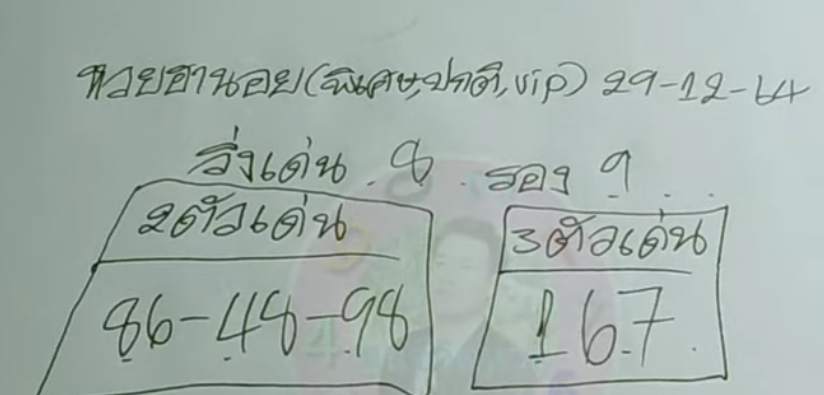 หวยฮานอย(พิเศษ,ปกติ,vip) 29-12-64
วิ่งเด่น 8 รอง 9
2ตัวเด่น
86-48-98
3ตัวเด่น
167